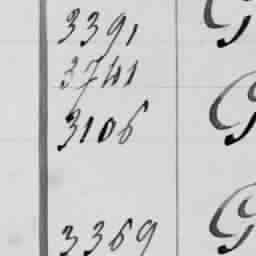 3391 G
3741
3106 G
3369 G